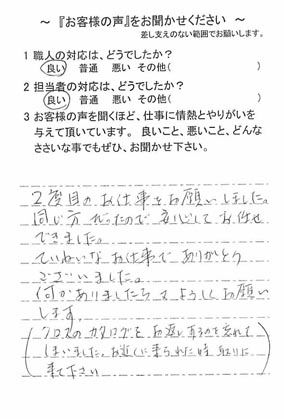 ～ 『お客様の声』をお聞かせください ～
差し支えのない範囲でお願いします。
1 職人の対応は、どうでしたか？
良い 普通 悪い その他( )
2 担当者の対応は、どうでしたか？
良い 普通 悪い その他( )
3 お客様の声を聞くほど、仕事に情熱とやりがいを
与えて頂いています。 良いこと、悪いこと、どんな
ささいな事でもぜひ、お聞かせ下さい。
2度目のお仕事をお願いしました。
同じ方だったので安心してお任せ
できました。
ていねいなお仕事でありがとう
ございました。
何かありましたらよろしくお願い
します。
(クロスのカタログをお返しするのを忘れて
しまいました。お近くに来られた時、取りに
来て下さい)